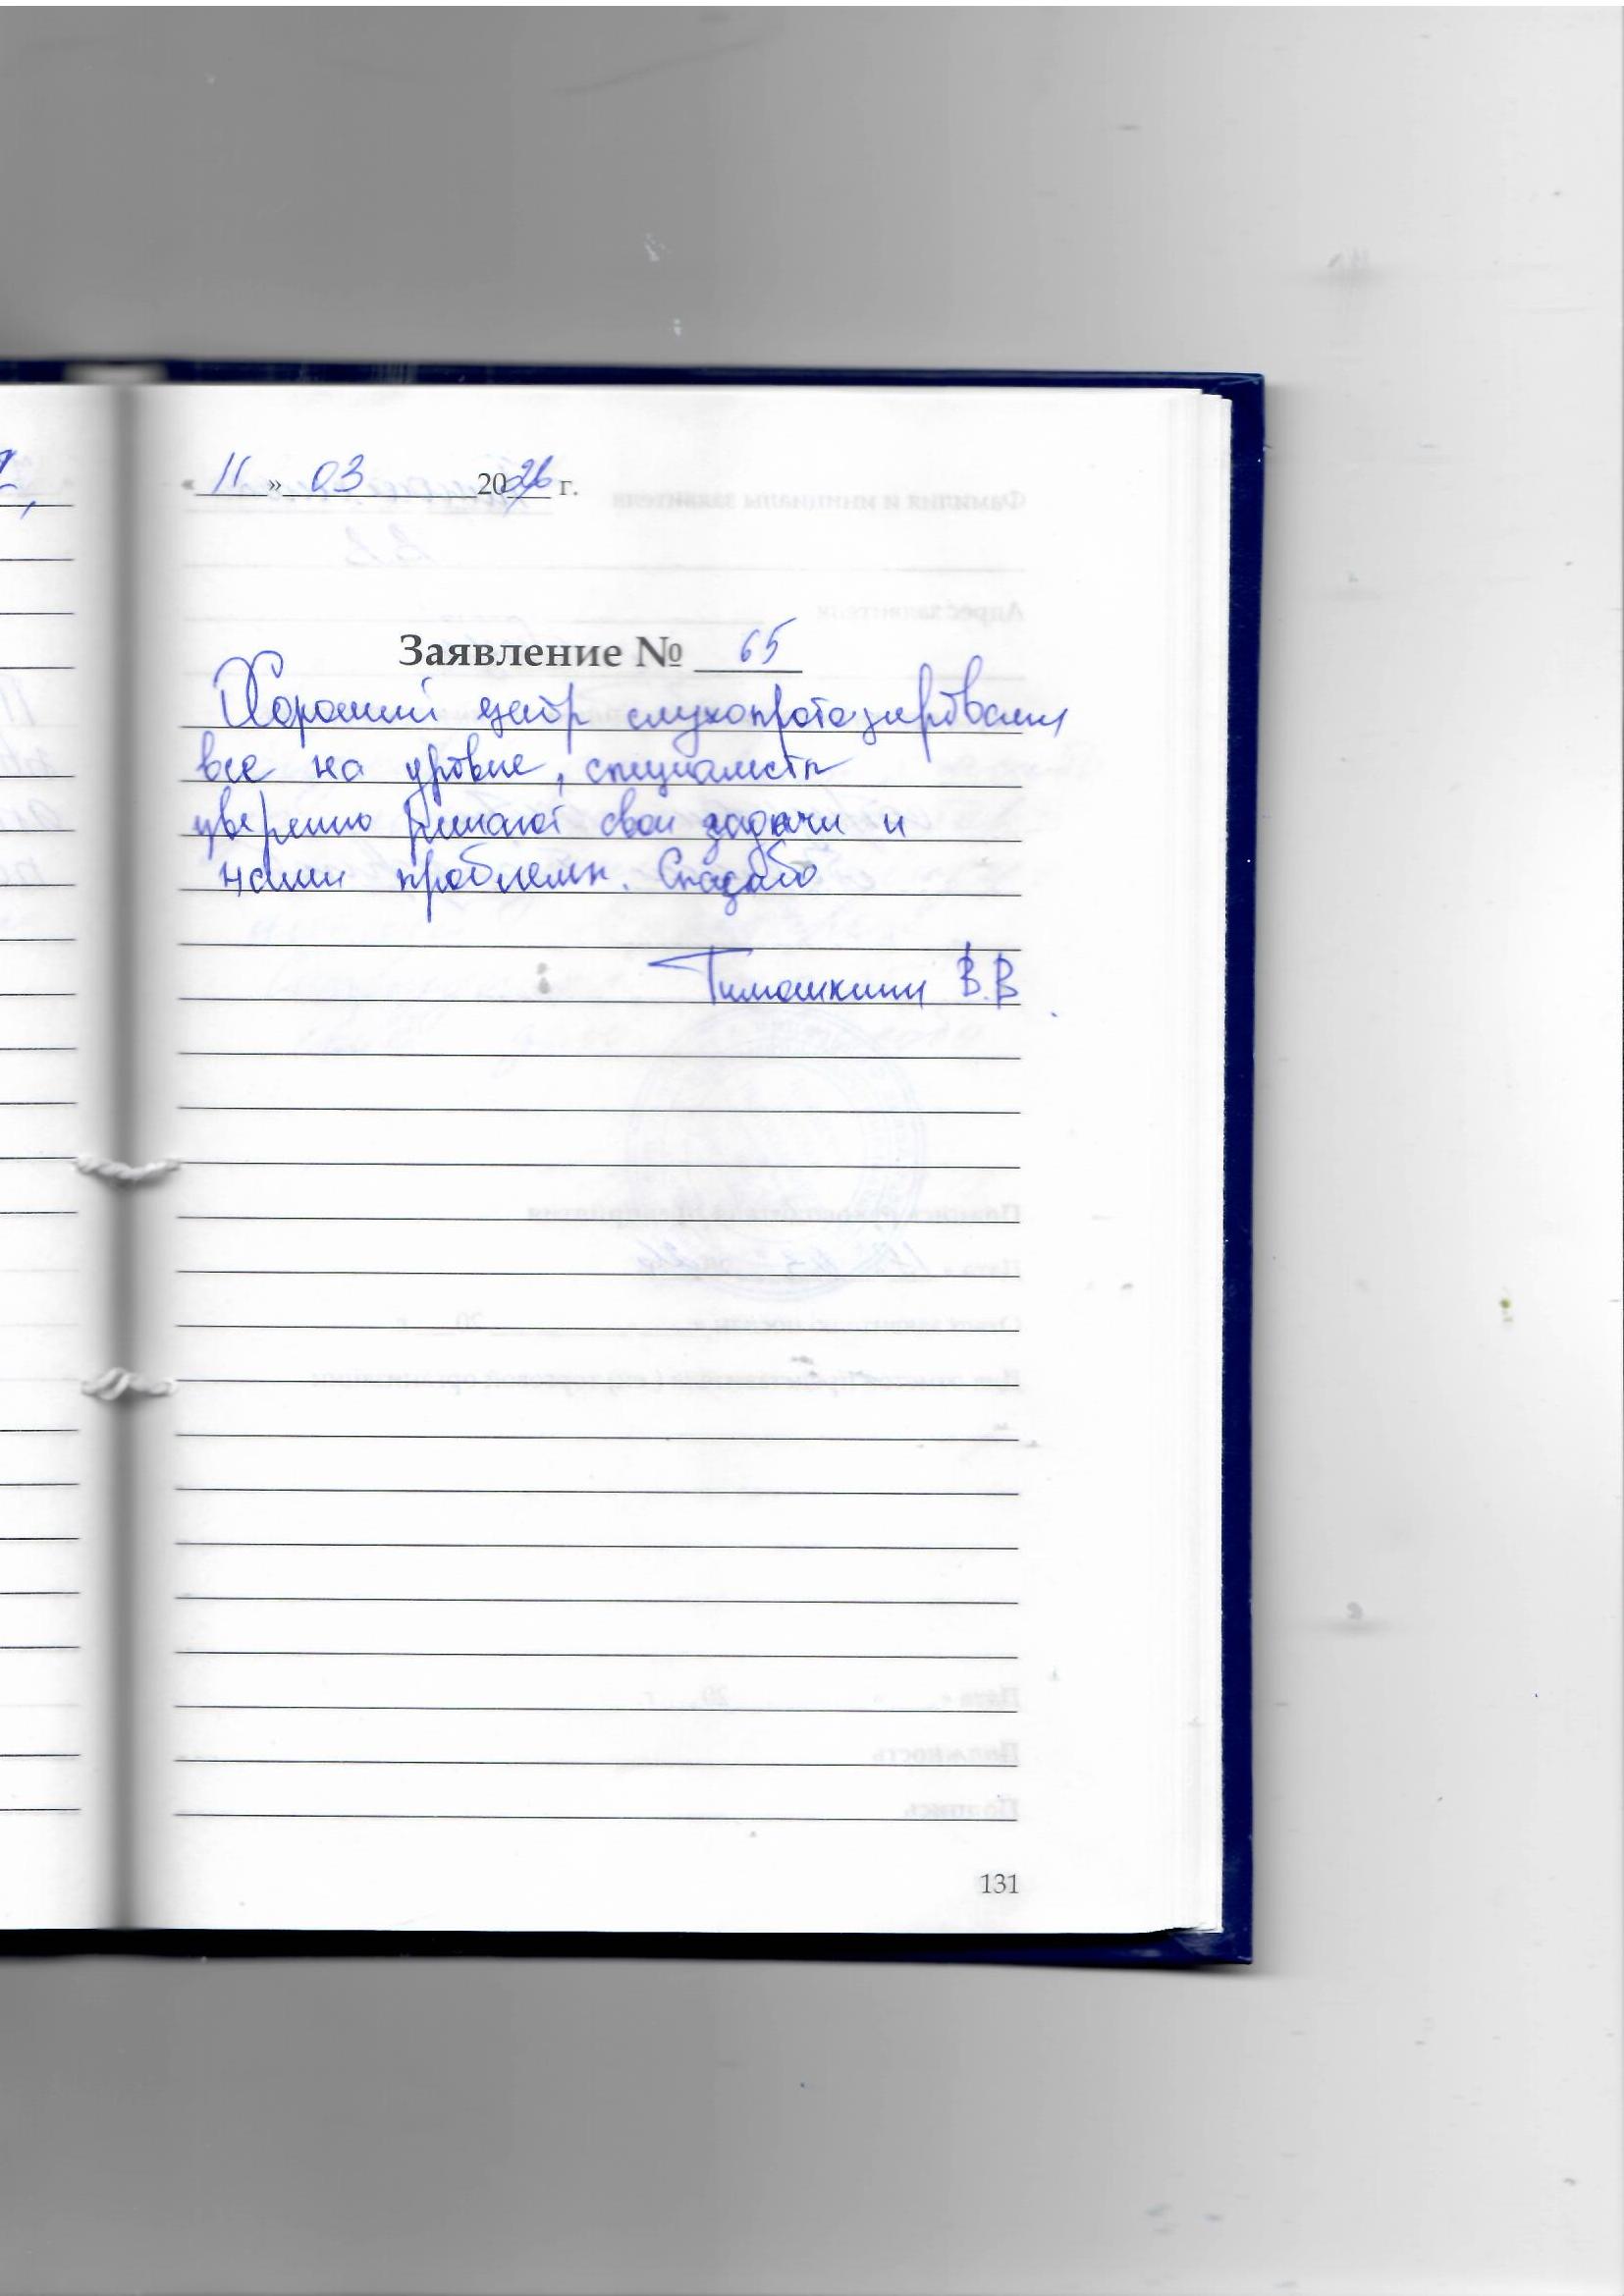 «11» 03 2026 г.
Заявление № 65
Хороший центр слухопротезирования
все на уровне, специалисты
уверенно решают свои задачи и
наши проблемы. Спасибо
Тимошкин В.В.
131